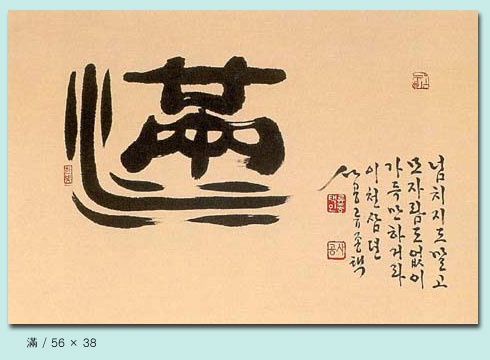 滿
넘치지도 말고
모자람도 없이
가득만 하거라
이천삼년
류종택
滿 / 56 × 38